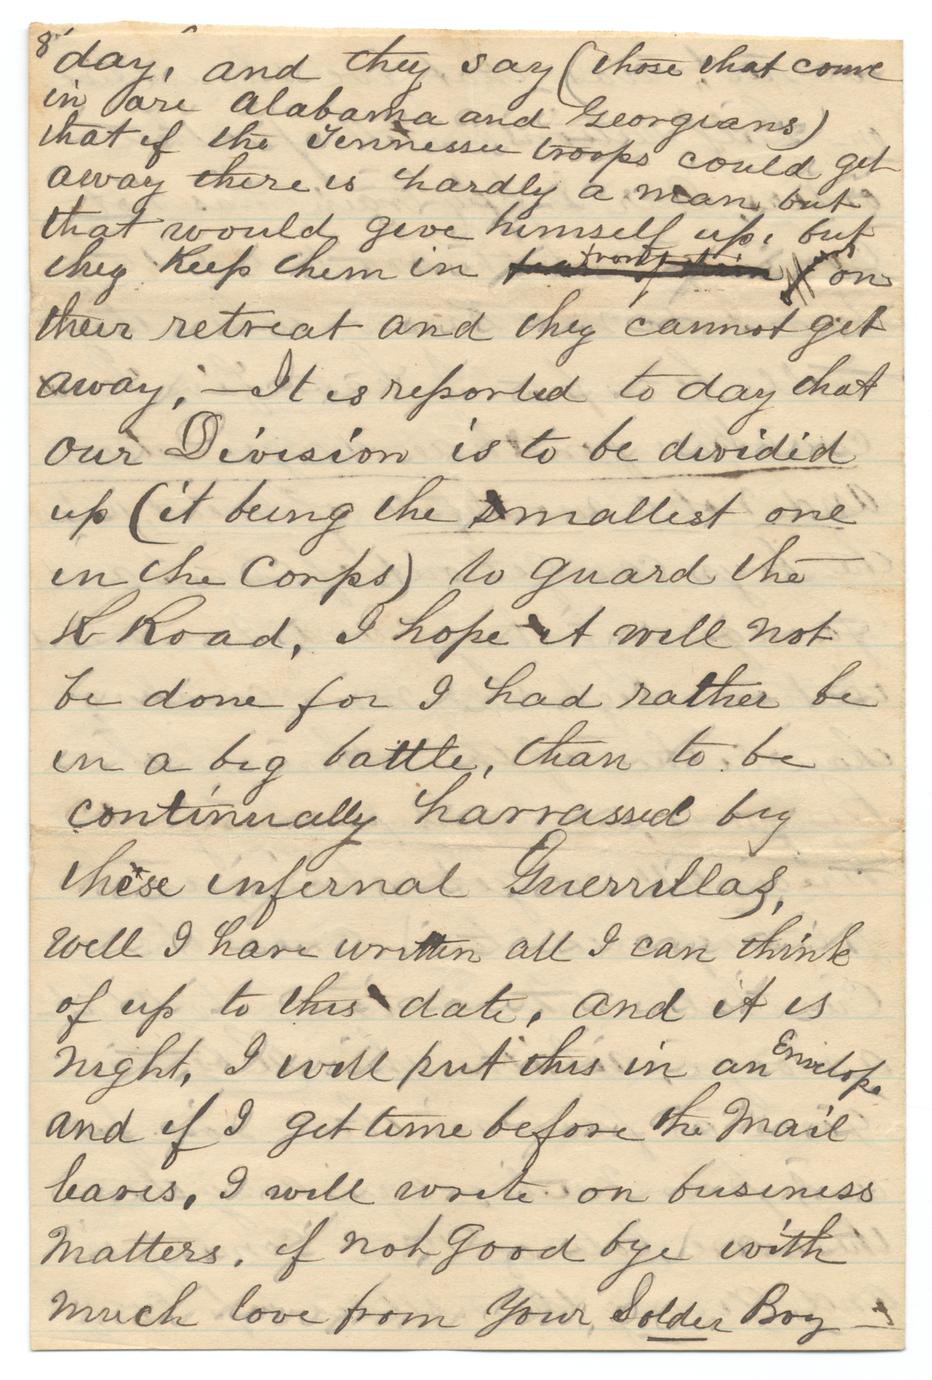 8
day, and they say (those that come
in are Alabama and Georgians)
that if the Tennessee troops could get
away there is hardly a man but
that would give himself up, but
they keep them in front on
their retreat and they cannot get
away; — It is reported to day that
our Division is to be dividid
up (it being the smallest one
in the Corps) to guard the
R Road, I hope it will not
be done for I had rather be
in a big battle, than to be
continually harrassed by
these infernal Guerrillas,
Well I have written all I can think
of up to this date, and it is
night, I will put this in an Envelop.
and if I get time before the Mail
leaves, I will write on business
Matters. if not Good bye with
much love from Your Solder Boy —